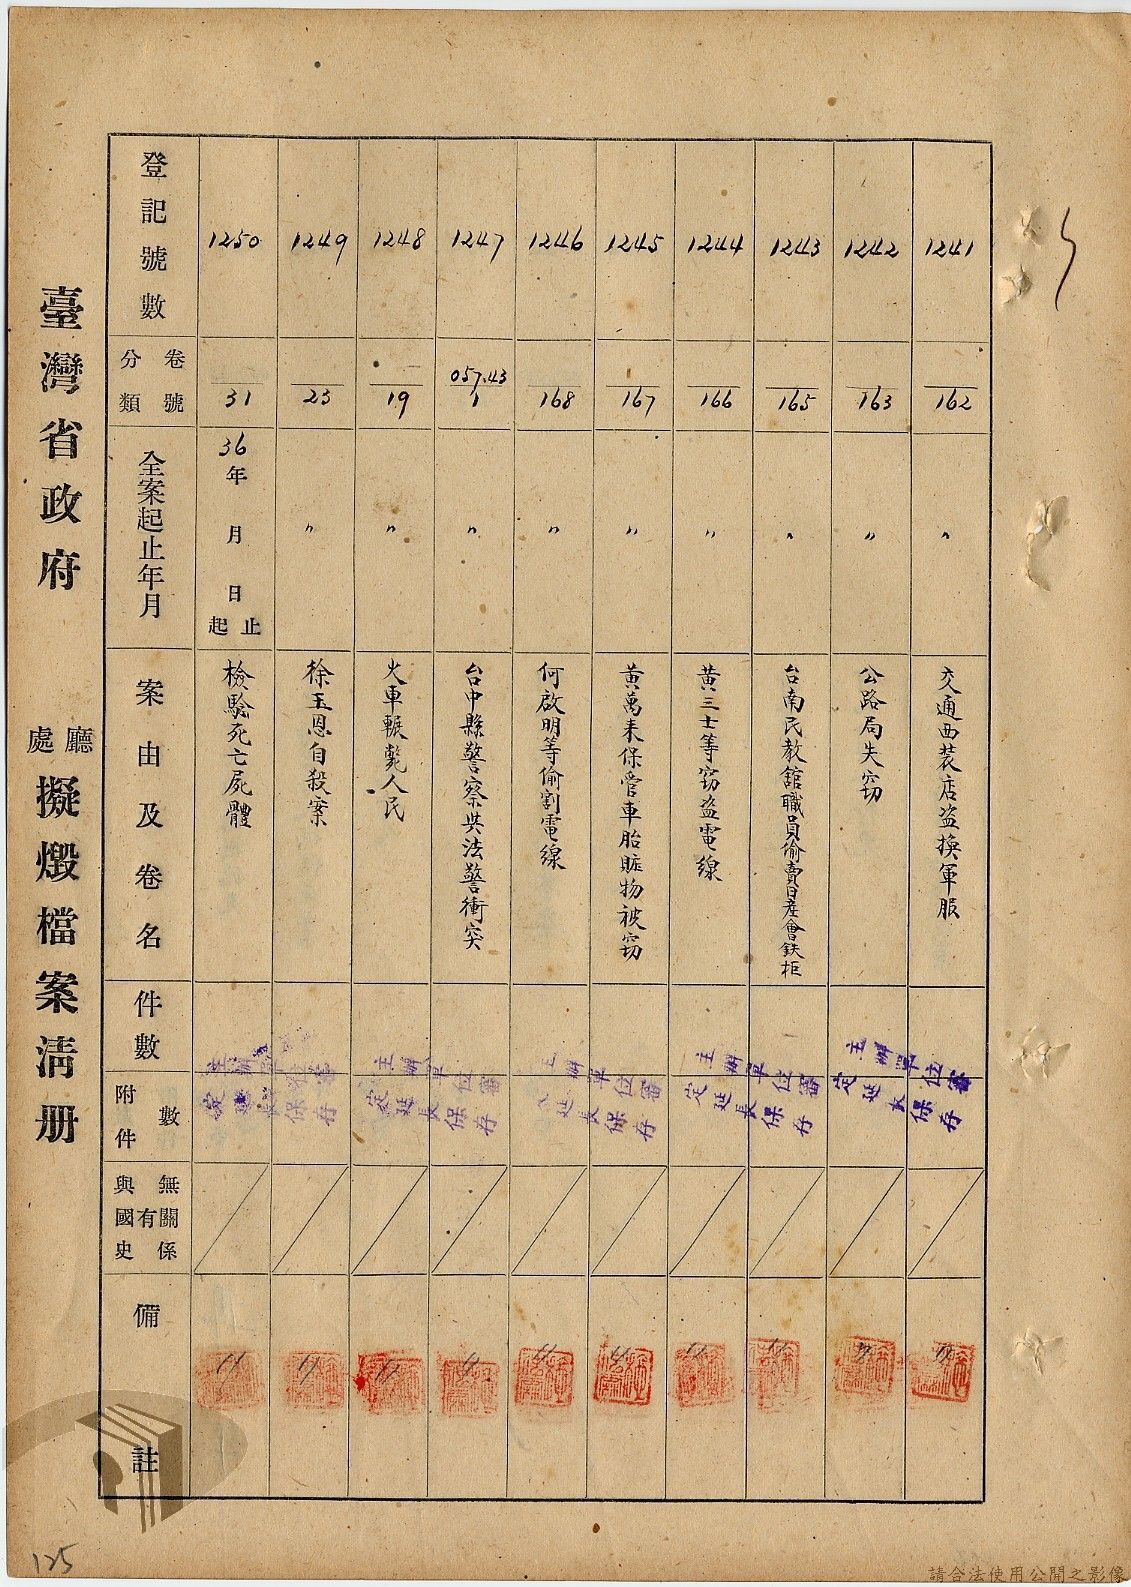 臺灣省政府 廳處 擬燬檔案清册
登記號數
卷號
分類
全案起止年月
案由及卷名
件數
附件數
與國史有無關係
備註
1250
31
36年 月 日起止
檢驗死亡屍體
1249
23
〃
徐玉恩自殺案
1248
19
〃
火車輾斃人民
1247
057.43
1
〃
台中縣警察與法警衝突
1246
168
〃
何啟明等偷割電線
1245
167
〃
黃萬來保管車胎賍物被窃
1244
166
〃
黃三士等窃盗電線
1243
165
〃
台南民教舘職員偷賣日產會鉄柜
1242
163
〃
公路局失窃
1241
162
〃
交通西裝店盗換軍服
主辦單位審
定延長保存
主辦單位審
定延長保存
主辦單位審
定延長保存
主辦單位審
定延長保存
主辦單位審
定延長保存
125
請合法使用公開之影像